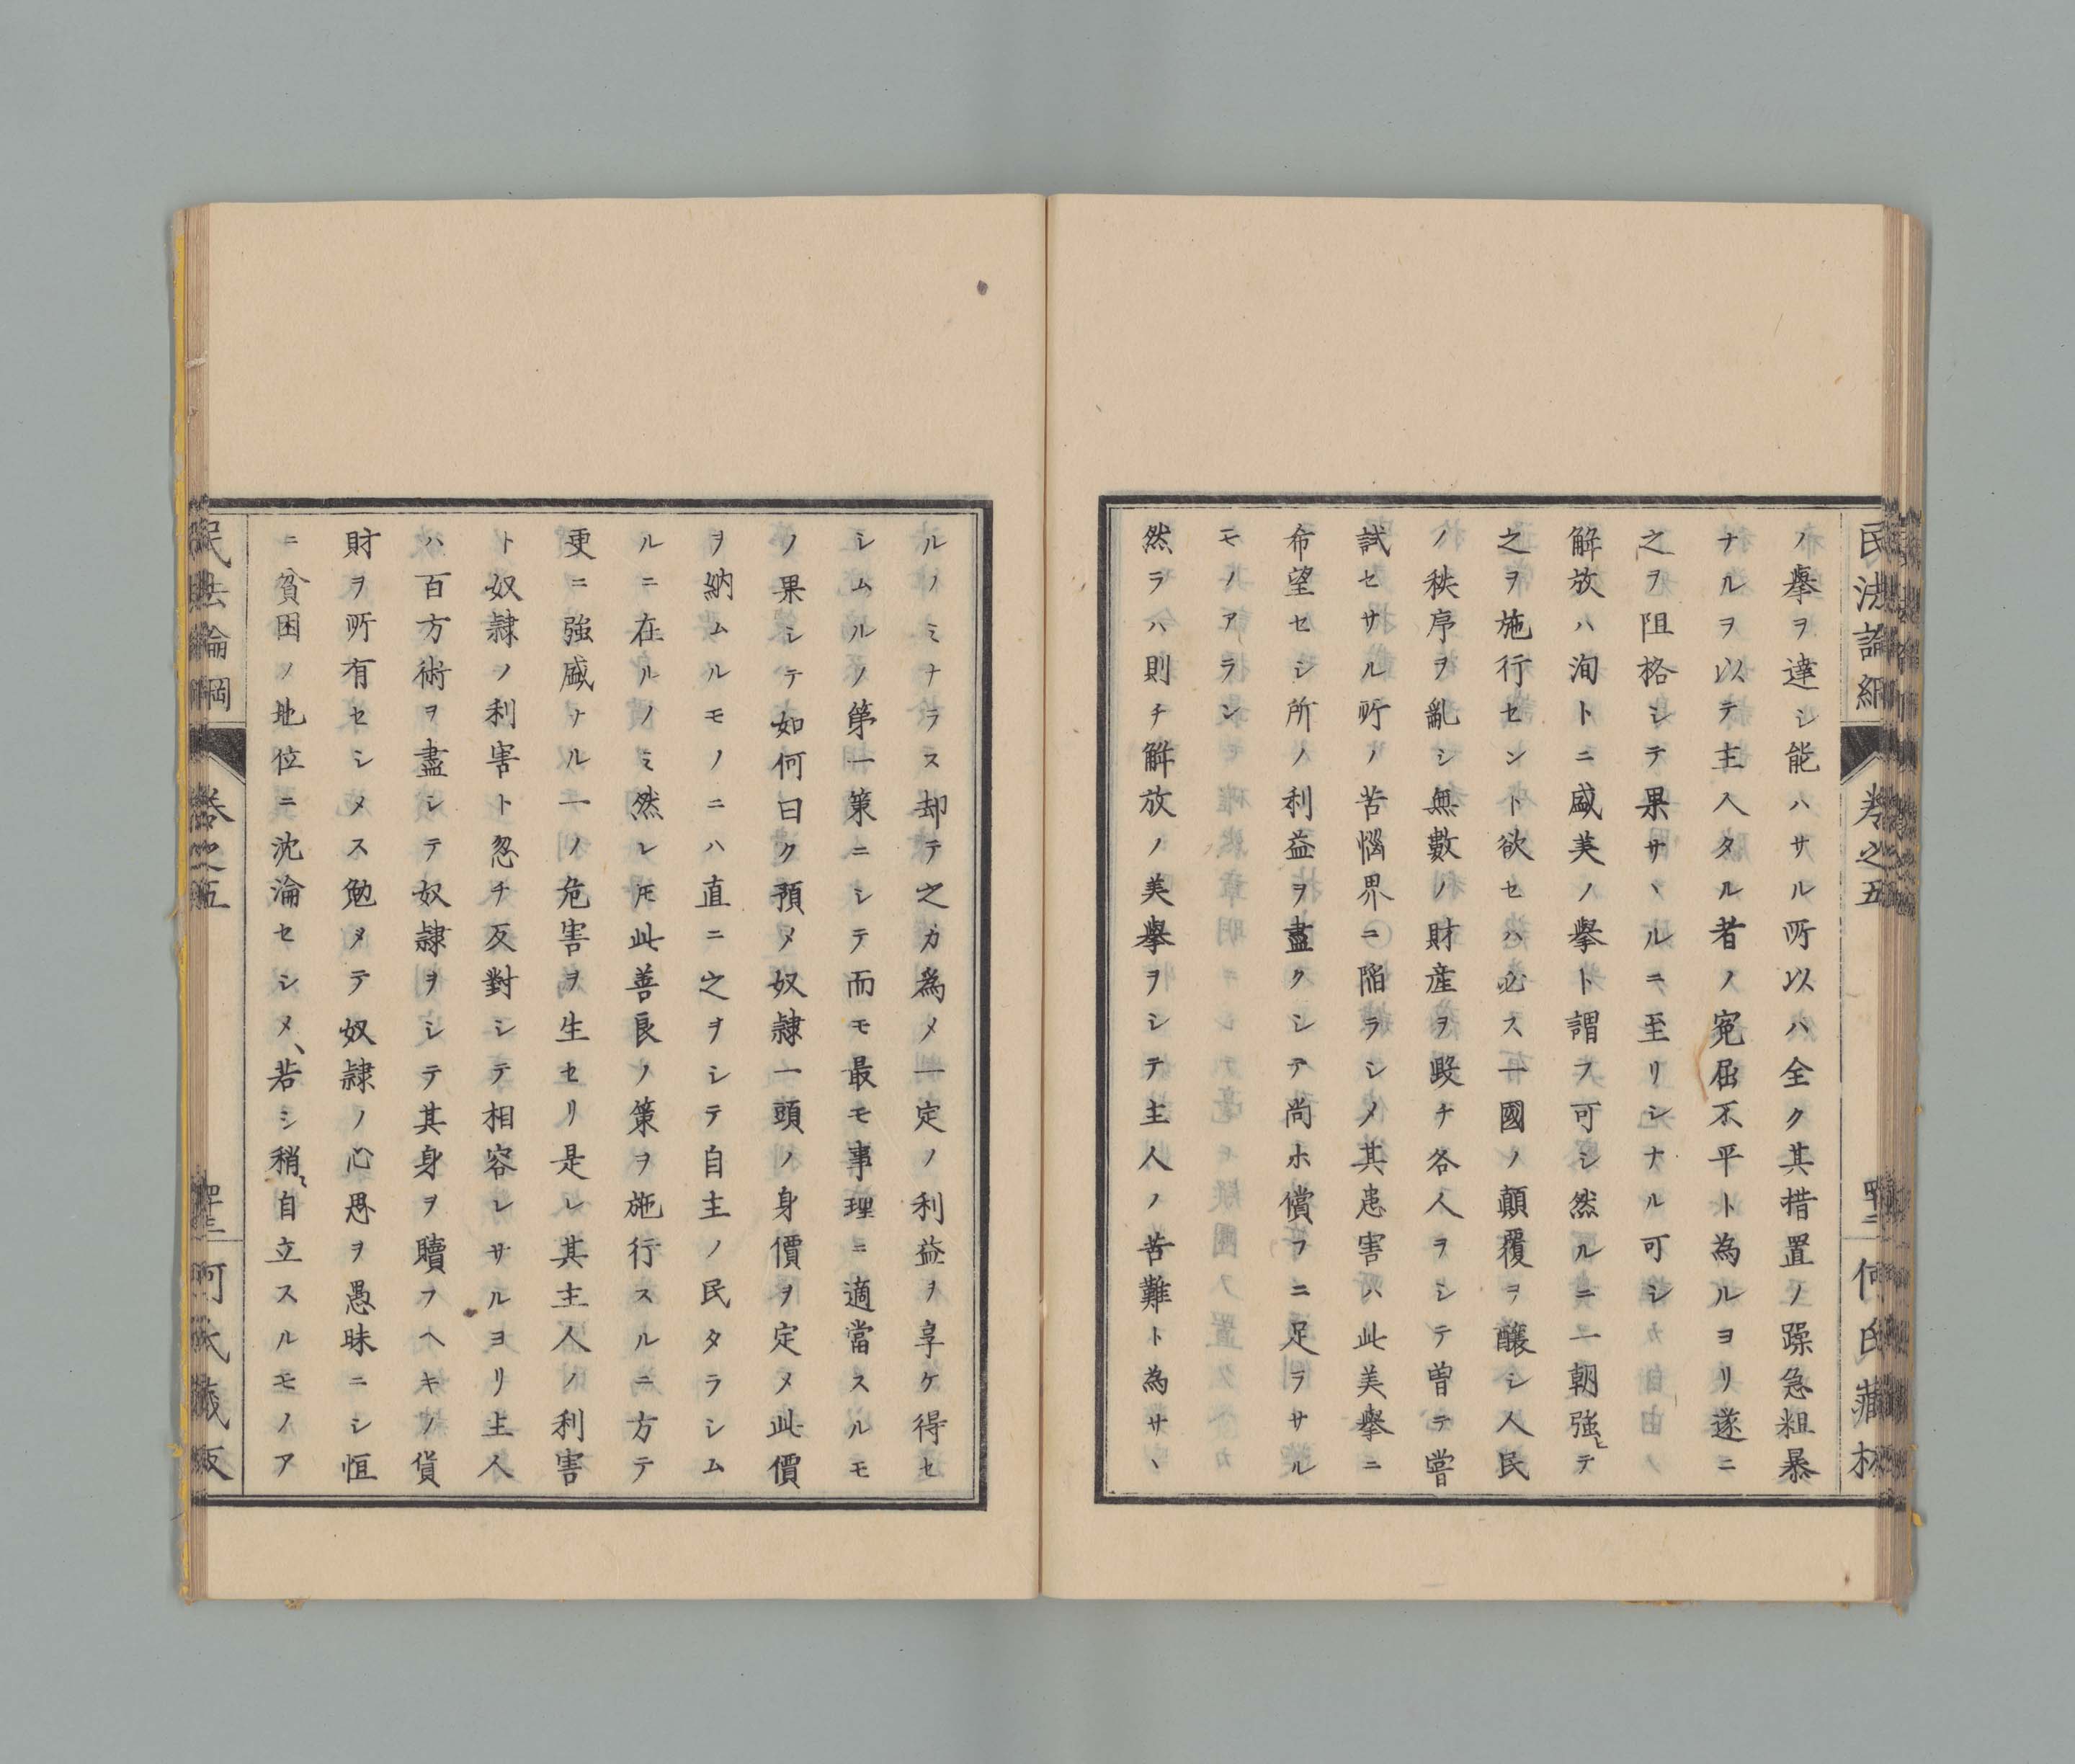 民法論綱
卷之五
四十二
何氏藏板
ノ擧ヲ達シ能ハサル所以ハ全ク其措置ノ躁急粗暴
ナルヲ以テ主人タル者ノ寃屈不平ト為ルヨリ遂ニ
之ヲ阻格シテ果サヽルニ至リシナル可シ
解放ハ洵トニ盛美ノ擧ト謂フ可シ然ルニ一朝強ヒテ
之ヲ施行セント欲セハ必ス一國ノ顚覆ヲ釀シ人民
ノ秩序ヲ亂シ無數ノ財産ヲ毀チ各人ヲシテ曽テ嘗
試セサル所ノ苦惱界ニ陥ラシメ其患害ハ此美擧ニ
希望セシ所ノ利益ヲ盡クシテ尚ホ償フニ足ラサル
モノアラン
然ラハ則チ解放ノ美擧ヲシテ主人ノ苦難ト為サヽ
ルノミナラス却テ之カ為メ一定ノ利益ヲ享ケ得セ
シムルノ第一策ニシテ而モ最モ事理ニ適當スルモ
ノ果シテ如何曰ク預メ奴隷一頭ノ身價ヲ定メ此價
ヲ納ムルモノニハ直ニ之ヲシテ自主ノ民タラシム
ルニ在ルノミ然レ𪜈此善良ノ策ヲ施行スルニ方テ
更ニ強盛ナル一ノ危害ヲ生セリ是レ其主人ノ利害
ト奴隷ノ利害ト忽チ反對シテ相容レサルヨリ主人
ハ百方術ヲ盡シテ奴隷ヲシテ其身ヲ贖フヘキノ貨
財ヲ所有セシメス勉メテ奴隷ノ心思ヲ愚昧ニシ恒
ニ貧困ノ地位ニ沈淪セシメ、若シ稍〻自立スルモノア
民法論綱
卷之五
四十三
何氏藏板